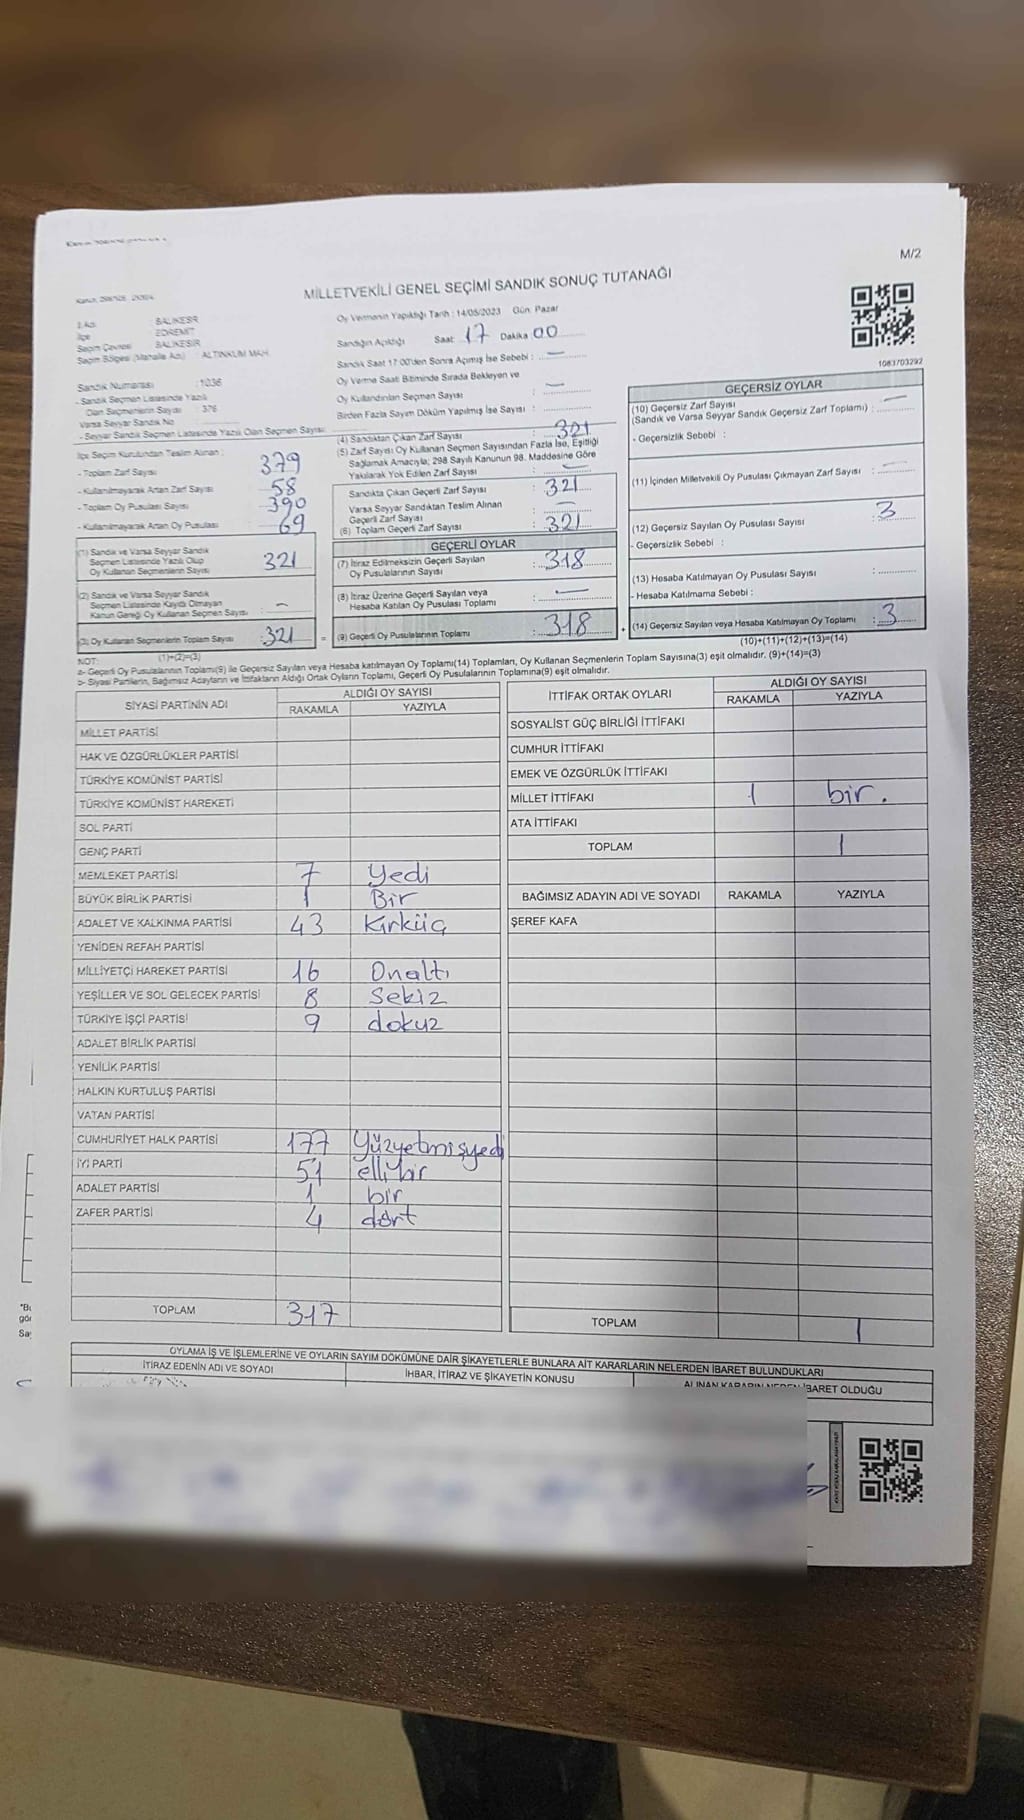 M/2
MİLLETVEKİLİ GENEL SEÇİMİ SANDIK SONUÇ TUTANAĞI
İl Adı : BALIKESİR
İlçe : EDREMİT
Seçim Çevresi : BALIKESİR
Seçim Bölgesi (Mahalle Adı) : ALTINKUM MAH.
Sandık Numarası : 1036
- Sandık Seçmen Listesinde Yazılı
Olan Seçmenlerin Sayısı : 376
Varsa Seyyar Sandık No :
- Seyyar Sandık Seçmen Listesinde Yazılı Olan Seçmen Sayısı:
İlçe Seçim Kurulundan Teslim Alınan :
- Toplam Zarf Sayısı 379
- Kullanılmayarak Artan Zarf Sayısı 58
- Toplam Oy Pusulası Sayısı 390
- Kullanılmayarak Artan Oy Pusulası 69
(1) Sandık ve Varsa Seyyar Sandık
Seçmen Listesinde Yazılı Olup
Oy Kullanan Seçmenlerin Sayısı 321
(2) Sandık ve Varsa Seyyar Sandık
Seçmen Listesinde Kayıtlı Olmayan
Kanun Gereği Oy Kullanan Seçmen Sayısı : -
(3) Oy Kullanan Seçmenlerin Toplam Sayısı : 321 =
(1)+(2)=(3)
Oy Vermenin Yapıldığı Tarih : 14/05/2023 Gün: Pazar
Sandığın Açıldığı Saat: 17 Dakika 00
Sandık Saat 17:00'den Sonra Açılmış İse Sebebi : -
Oy Verme Saati Bitiminde Sırada Bekleyen ve
Oy Kullandırılan Seçmen Sayısı : -
Birden Fazla Sayım Döküm Yapılmış İse Sayısı :
(4) Sandıktan Çıkan Zarf Sayısı : 321
(5) Zarf Sayısı Oy Kullanan Seçmen Sayısından Fazla İse, Eşitliği
Sağlamak Amacıyla; 298 Sayılı Kanunun 98. Maddesine Göre
Yakılarak Yok Edilen Zarf Sayısı : -
Sandıkta Çıkan Geçerli Zarf Sayısı : 321
Varsa Seyyar Sandıktan Teslim Alınan
Geçerli Zarf Sayısı : -
(6) Toplam Geçerli Zarf Sayısı : 321
GEÇERLİ OYLAR
(7) İtiraz Edilmeksizin Geçerli Sayılan
Oy Pusulalarının Sayısı : 318
(8) İtiraz Üzerine Geçerli Sayılan veya
Hesaba Katılan Oy Pusulası Toplamı : -
(9) Geçerli Oy Pusulalarının Toplamı : 318 +
1083703292
GEÇERSİZ OYLAR
(10) Geçersiz Zarf Sayısı
(Sandık ve Varsa Seyyar Sandık Geçersiz Zarf Toplamı) : -
- Geçersizlik Sebebi :
(11) İçinden Milletvekili Oy Pusulası Çıkmayan Zarf Sayısı : -
(12) Geçersiz Sayılan Oy Pusulası Sayısı : 3
- Geçersizlik Sebebi :
(13) Hesaba Katılmayan Oy Pusulası Sayısı :
- Hesaba Katılmama Sebebi :
(14) Geçersiz Sayılan veya Hesaba Katılmayan Oy Toplamı : 3
(10)+(11)+(12)+(13)=(14)
NOT:
a- Geçerli Oy Pusulalarının Toplamı(9) ile Geçersiz Sayılan veya Hesaba katılmayan Oy Toplamı(14) Toplamları, Oy Kullanan Seçmenlerin Toplam Sayısına(3) eşit olmalıdır. (9)+(14)=(3)
b- Siyasi Partilerin, Bağımsız Adayların ve İttifakların Aldığı Ortak Oyların Toplamı, Geçerli Oy Pusulalarının Toplamına(9) eşit olmalıdır.
SİYASİ PARTİNİN ADI ALDIĞI OY SAYISI
RAKAMLA YAZIYLA
MİLLET PARTİSİ
HAK VE ÖZGÜRLÜKLER PARTİSİ
TÜRKİYE KOMÜNİST PARTİSİ
TÜRKİYE KOMÜNİST HAREKETİ
SOL PARTİ
GENÇ PARTİ
MEMLEKET PARTİSİ 7 Yedi
BÜYÜK BİRLİK PARTİSİ 1 Bir
ADALET VE KALKINMA PARTİSİ 43 Kırküç
YENİDEN REFAH PARTİSİ
MİLLİYETÇİ HAREKET PARTİSİ 16 Onaltı
YEŞİLLER VE SOL GELECEK PARTİSİ 8 Sekiz
TÜRKİYE İŞÇİ PARTİSİ 9 dokuz
ADALET BİRLİK PARTİSİ
YENİLİK PARTİSİ
HALKIN KURTULUŞ PARTİSİ
VATAN PARTİSİ
CUMHURİYET HALK PARTİSİ 177 Yüzyetmişyedi
İYİ PARTİ 51 ellibir
ADALET PARTİSİ 1 bir
ZAFER PARTİSİ 4 dört
TOPLAM 317
İTTİFAK ORTAK OYLARI ALDIĞI OY SAYISI
RAKAMLA YAZIYLA
SOSYALİST GÜÇ BİRLİĞİ İTTİFAKI
CUMHUR İTTİFAKI
EMEK VE ÖZGÜRLÜK İTTİFAKI
MİLLET İTTİFAKI 1 bir.
ATA İTTİFAKI
TOPLAM 1
BAĞIMSIZ ADAYIN ADI VE SOYADI RAKAMLA YAZIYLA
ŞEREF KAFA
TOPLAM 1
OYLAMA İŞ VE İŞLEMLERİNE VE OYLARIN SAYIM DÖKÜMÜNE DAİR ŞİKAYETLERLE BUNLARA AİT KARARLARIN NELERDEN İBARET BULUNDUKLARI
İTİRAZ EDENİN ADI VE SOYADI İHBAR, İTİRAZ VE ŞİKAYETİN KONUSU ALINAN KARARIN NEDEN İBARET OLDUĞU